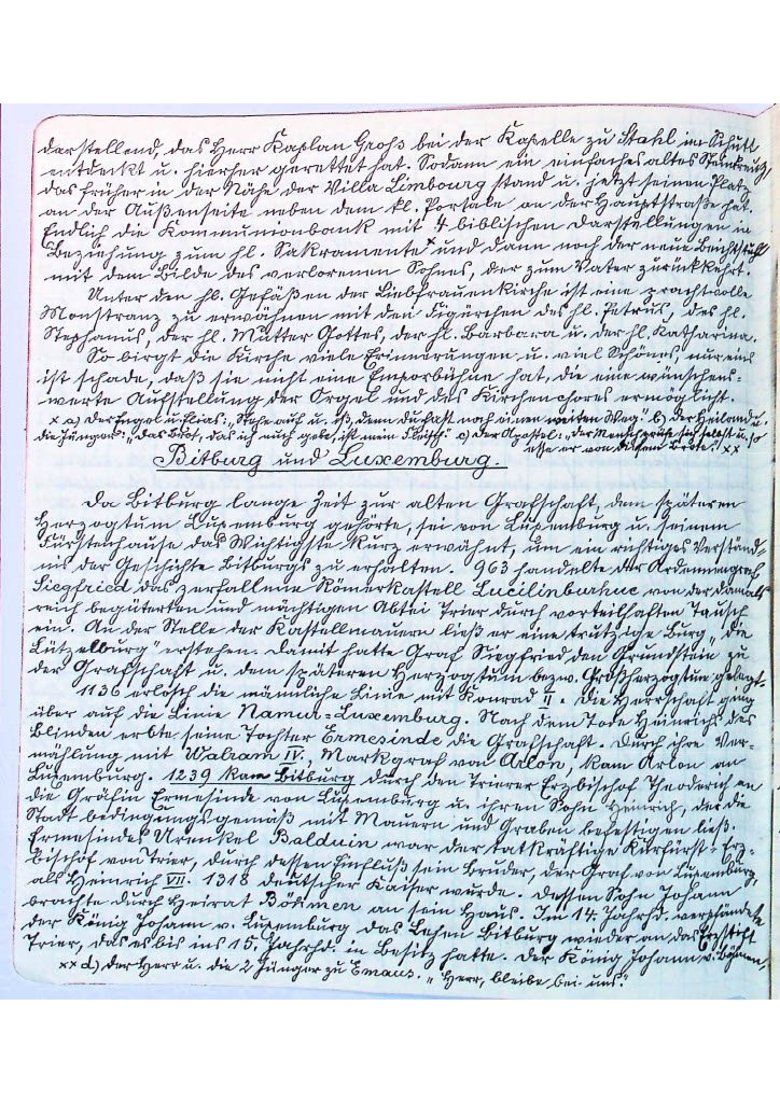 darstellend, das Herr Kaplan Groß bei der Kapelle zu Stahl im Schutt
entdeckt u. hierher gerettet hat. Sodann ein einfaches altes Steinkreuz,
das früher in der Nähe der Villa Limbourg stand u. jetzt seinen Platz
an der Außenseite neben dem kl. Portale an der Hauptstraße hat.
Endlich die Kommunionbank mit 4 biblischen Darstellungen in
Beziehung zum hl. Sakramente x und dann noch der neue Beichtstuhl
mit dem Bilde des verlorenen Sohnes, der zum Vater zurückkehrt.
Unter den hl. Gefäßen der Liebfrauenkirche ist eine prachtvolle
Monstranz zu erwähnen mit den Figürchen des hl. Petrus, des hl.
Stephanus, der hl. Mutter Gottes, der hl. Barbara u. der hl. Katharina.
So birgt die Kirche viele Erinnerungen u. viel Schönes, nur eins
ist schade, daß sie nicht eine Emporbühne hat, die eine wünschens-
werte Aufstellung der Orgel und des Kirchenchores ermöglicht.
x a) Der Engel u. Elias: „Stehe auf u. iß, denn du hast noch einen weiten Weg" b) der Heiland u.
die Jünger: „Das Brot, das ich euch gebe, ist mein Fleisch." c) Der Apostel: „der Mensch prüfe sich selbst u. so
esse er von diesem Brote." xx
Bitburg und Luxemburg.
Da Bitburg lange Zeit zur alten Grafschaft, dem späteren
Herzogtum Luxemburg gehörte, sei von Luxemburg u. seinem
Fürstenhause das Wichtigste kurz erwähnt, um ein richtiges Verständ-
nis der Geschichte Bitburgs zu erhalten. 963 handelte der Ardennengraf
Siegfried das zerfallene Römerkastell Lucilinburhuc von der damals
reich begüterten und mächtigen Abtei Trier durch vorteilhaften Tausch
ein. An der Stelle der Kastellmauern ließ er eine trutzige Burg „die
Lützelburg" erstehen. Damit hatte Graf Siegfried den Grundstein zu
der Grafschaft u. dem späteren Herzogtum bezw. Großherzogtum gelegt.
1136 erlosch die männliche Linie mit Konrad II. Die Herrschaft ging
über auf die Linie Namur-Luxemburg. Nach dem Tode Heinrichs des
Blinden erbte seine Tochter Ermesinde die Grafschaft. Durch ihre Ver-
mählung mit Walram IV, Markgraf von Arlon, kam Arlon an
Luxemburg. 1239 kam Bitburg durch den Trierer Erzbischof Theoderich an
die Gräfin Ermesinde von Luxemburg u. ihren Sohn Heinrich, der die
Stadt bedingungsgemäß mit Mauern und Graben befestigen ließ.
Ermesindes Urenkel Balduin war der tatkräftige Kurfürst-Erz-
bischof von Trier, durch dessen Einfluß sein Bruder, der Graf von Luxemburg,
als Heinrich VII. 1318 deutscher Kaiser wurde. Dessen Sohn Johann
brachte durch Heirat Böhmen an sein Haus. Im 14. Jahrhd. verpfändete
der König Johann v. Luxemburg das Lehen Bitburg wieder an das Erzstift
Trier, das es bis ins 15. Jahrhd. in Besitz hatte. Der König Johann v. Böhmen,
xx d) Der Herr u. die 2 Jünger zu Emaus. „Herr, bleibe bei uns."